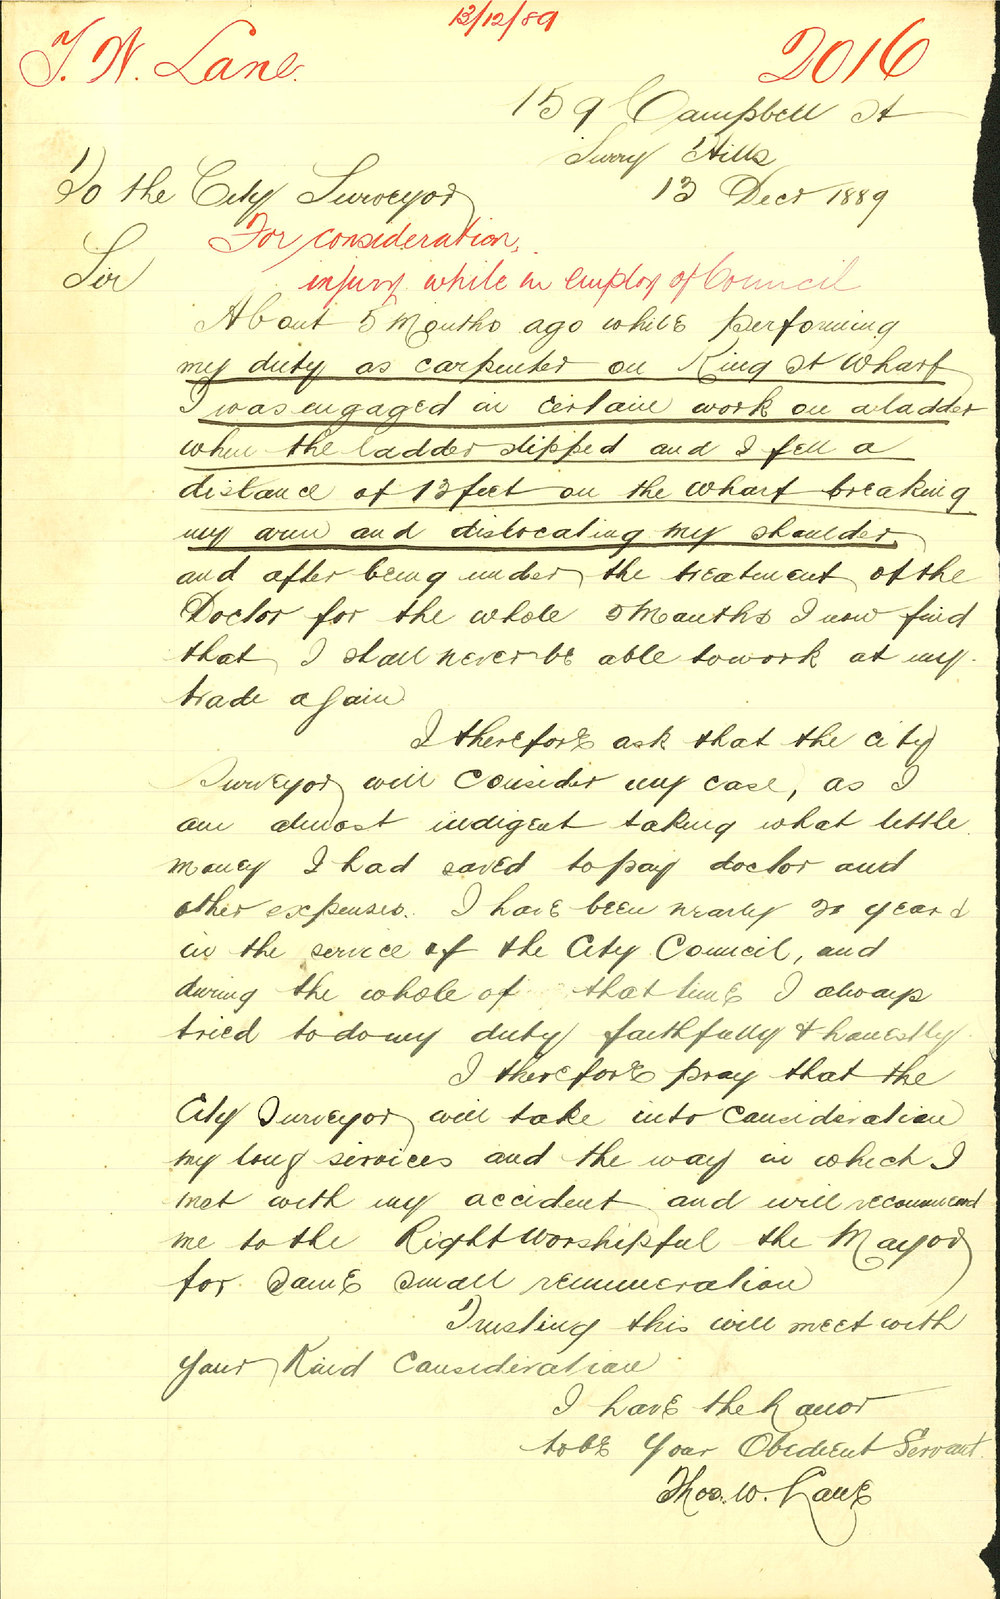 13/12/89
T. W. Lane. 2016
159 Campbell St
Surry Hills
To the City Surveyor 13 Decr 1889
For consideration,
Sir
injury while in employ of Council
About 5 Months ago while performing
my duty as carpenter on King St Wharf
I was engaged in certain work on a ladder
when the ladder slipped and I fell a
distance of 13 feet on the wharf breaking
my arm and dislocating my shoulder
and after being under the treatment of the
Doctor for the whole 5 Months I now find
that I shall never be able to work at my
trade again
I therefore ask that the City
Surveyor will consider my case, as I
am almost indigent taking what little
money I had saved to pay doctor and
other expenses. I have been nearly 20 years
in the service of the City Council, and
during the whole of that time I always
tried to do my duty faithfully & honestly
I therefore pray that the
City Surveyor will take into consideration
my long services and the way in which I
met with my accident and will recommend
me to the Right Worshipful the Mayor
for some small remuneration
Trusting this will meet with
your Kind Consideration
I have the honor
to be Your Obedient Servant
Thos. W. Lane